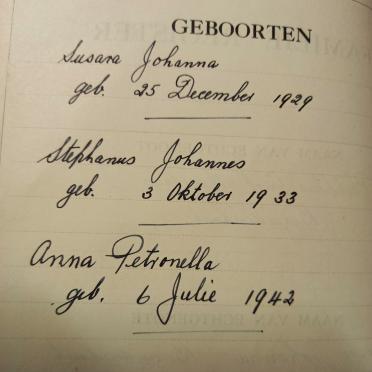 GEBOORTEN
Susara Johanna
geb. 25 December 1929
Stephanus Johannes
geb. 3 Oktober 1933
Anna Petronella
geb. 6 Julie 1942